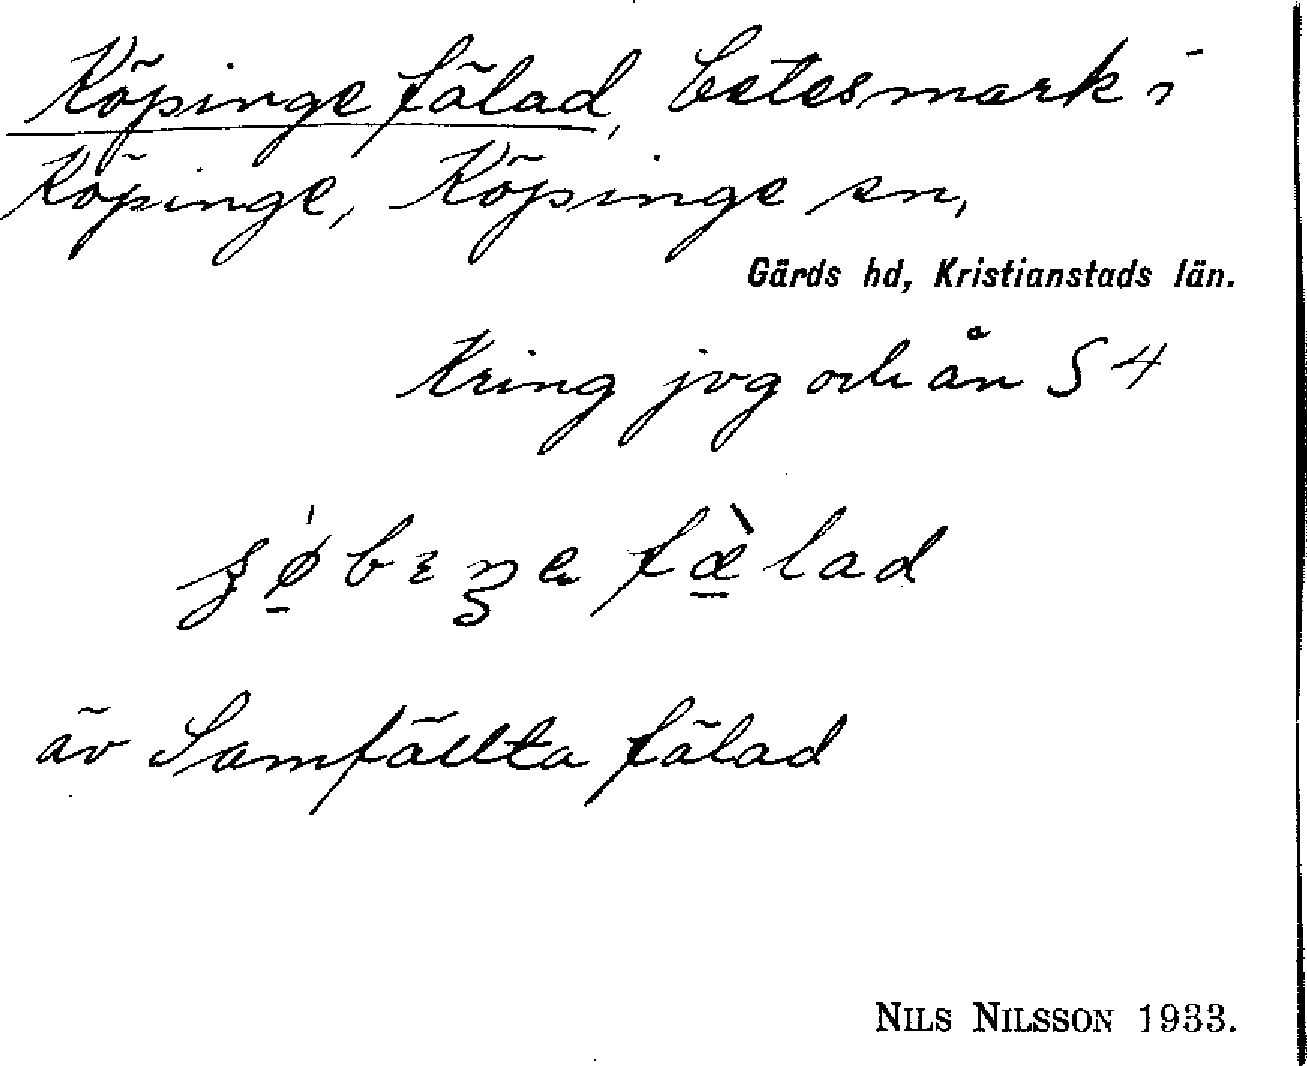 Köpinge fälad, betesmark i
Köpinge, Köpinge sn,
Gärds hd, Kristianstads län.
Kring jvg och ån S 4
fä̀lad
äv Samfällta fälad
NILS NILSSON 1933.